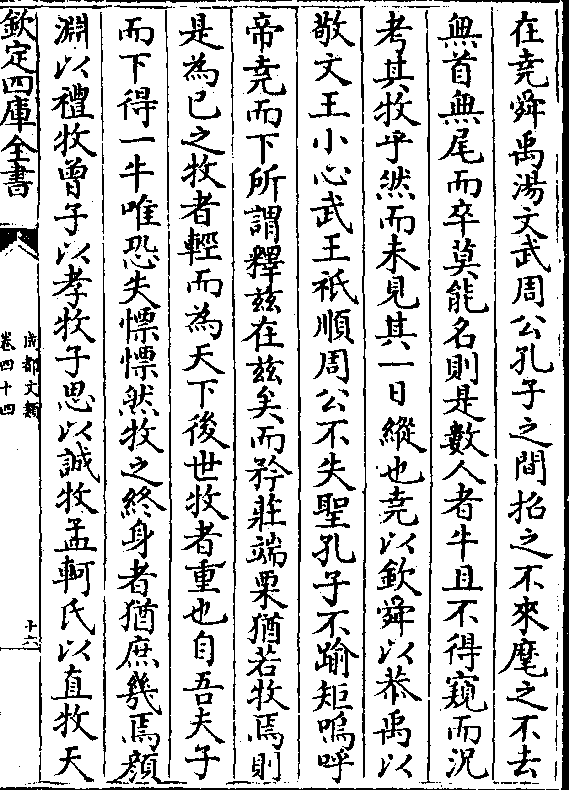 在堯舜禹湯文武周公孔子之間招之不來麾之不去
無首無尾而卒莫能名則是數人者牛且不得窺而況
考其牧乎然而未見其一日縱也堯以欽舜以恭禹以
敬文王小心武王祇順周公不失聖孔子不踰矩嗚呼
帝堯而下所謂釋兹在兹矣而矜莊端栗猶若牧焉則
是為已之牧者輕而為天下後世牧者重也自吾夫子
而下得一牛唯恐失慄慄然牧之終身者猶庶幾焉顔
淵以禮牧曾子以孝牧子思以誠牧孟軻氏以直牧天
欽定四庫全書
成都文類
卷四十四
十六